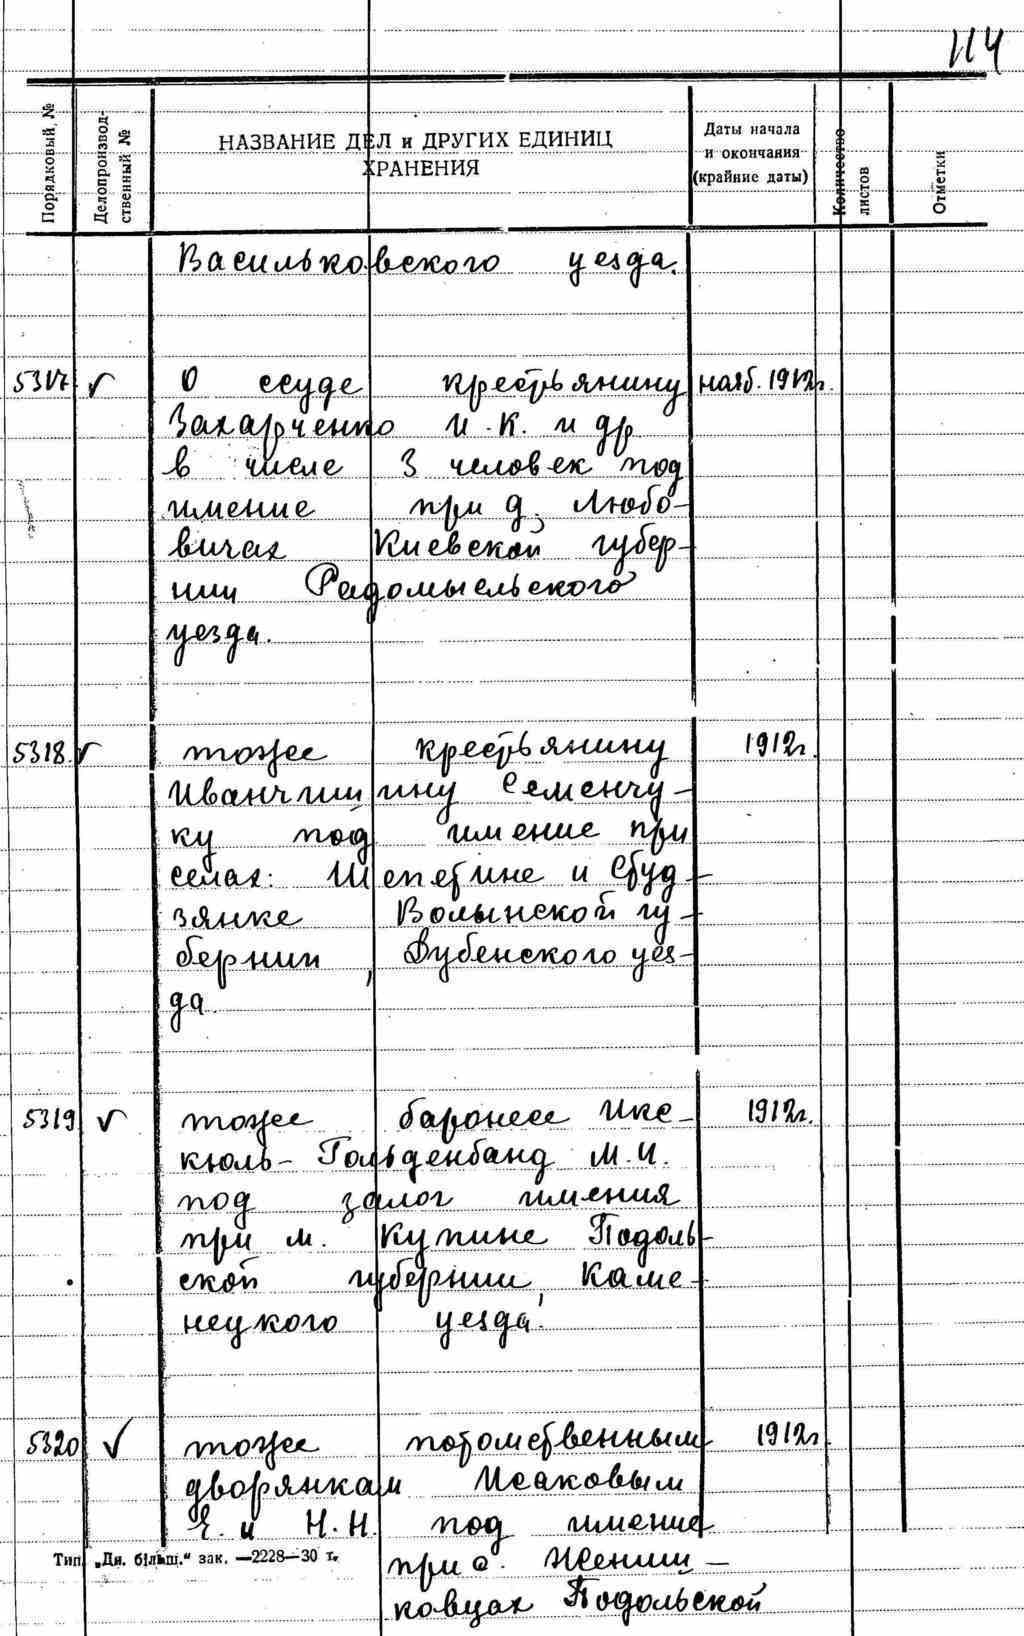 114
Порядковый, №
Делопроизвод-
ственный №
НАЗВАНИЕ ДЕЛ и ДРУГИХ ЕДИНИЦ
ХРАНЕНИЯ
Даты начала
и окончания
(крайние даты)
Количество
листов
Отметки
Васильковского уезда.
5317 О ссуде крестьянину нояб. 1912г.
Захарченко И.К. и др
в числе 3 человек под
имение при д. Любо-
вичах Киевской губер-
нии Радомысльского
уезда.
5318 тоже крестьянину 1912г.
Семенчу-
ку под имение при
селах: Шепетине и Студ-
зянке Волынской гу-
бернии, Дубенского уез-
да.
5319 тоже баронессе Икс- 1912г.
кюль-Гольденбанд М.И.
под залог имения
при м. Купине Подоль-
ской губернии, Каме-
нецкого уезда.
5320 тоже потомственным 1912г
дворянкам Исаковым
Е. и Н.Н. под имение
при с.
ковцах Подольской
Тип. „Дн. більш." зак. —2228—30 т.